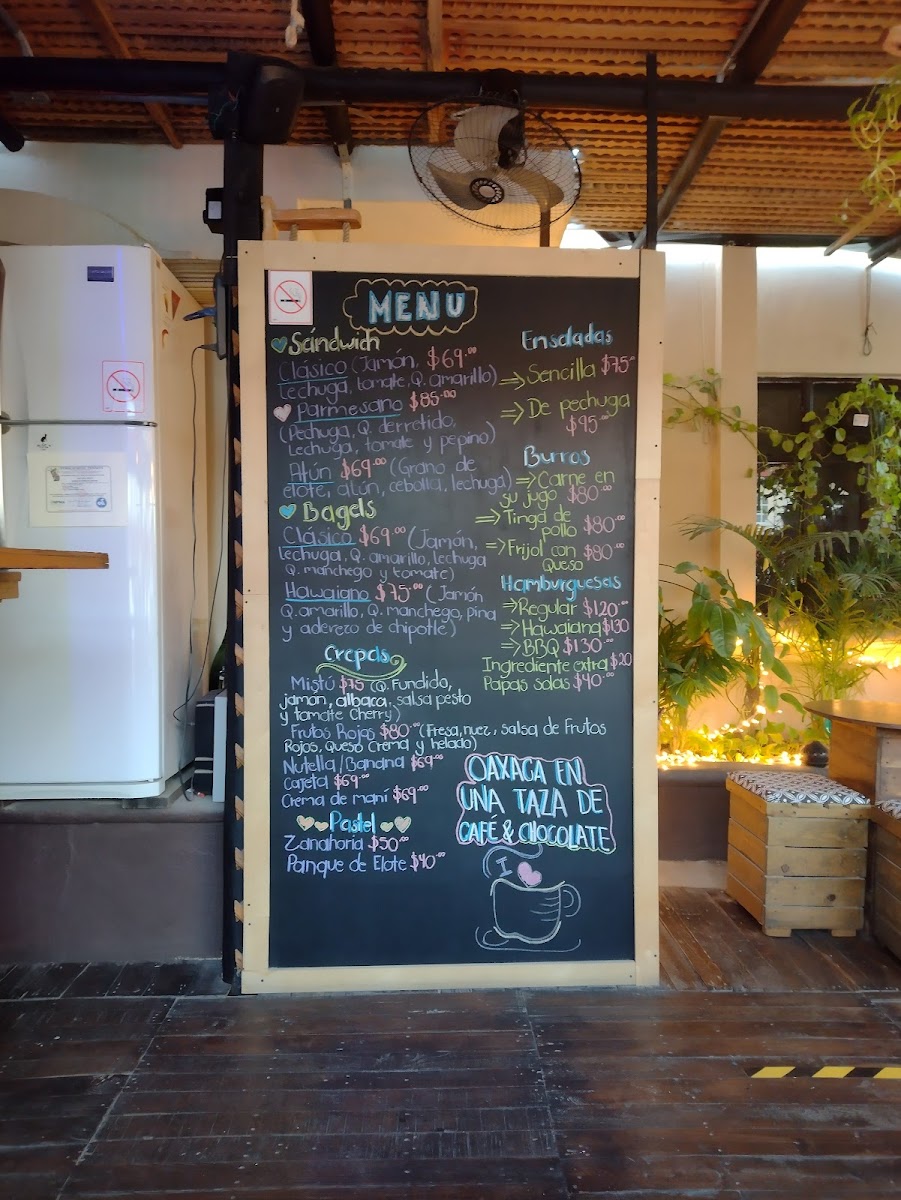 MENU
Sándwich
Clásico (Jamón, $69.00
Lechuga, tomate, Q. amarillo)
Parmesano $85.00
(Pechuga, Q. derretido,
Lechuga, tomate y pepino)
Atún $69.00 (Grano de
elote, atún, cebolla, lechuga)
Bagels
Clásico $69.00 (Jamón,
lechuga, Q. amarillo, lechuga
Q. manchego y tomate)
Hawaiano $75.00 (Jamón
Q. amarillo, Q. manchego, piña
y aderezo de chipotle)
Crepas
Mistú $75 (Q. Fundido,
jamon, albaca, salsa pesto
y tomate Cherry)
Frutos Rojos $80.00 (Fresa, nuez, salsa de Frutos
Rojos, Queso Crema y helado)
Nutella/Banana $69.00
Cajeta $69.00
Crema de maní $69.00
Pastel
Zanahoria $50.00
Panque de Elote $40.00
Ensaladas
⇒ Sencilla $75.00
⇒ De pechuga
$95.00
Burros
⇒ Carne en
su jugo $80.00
⇒ Tinga de
pollo $80.00
⇒ Frijol con
Queso $80.00
Hamburguesas
⇒ Regular $120.00
⇒ Hawaiana $130
⇒ BBQ $130.00
Ingrediente extra $20
Papas solas $40.00
OAXACA EN
UNA TAZA DE
CAFÉ & CHOCOLATE
I